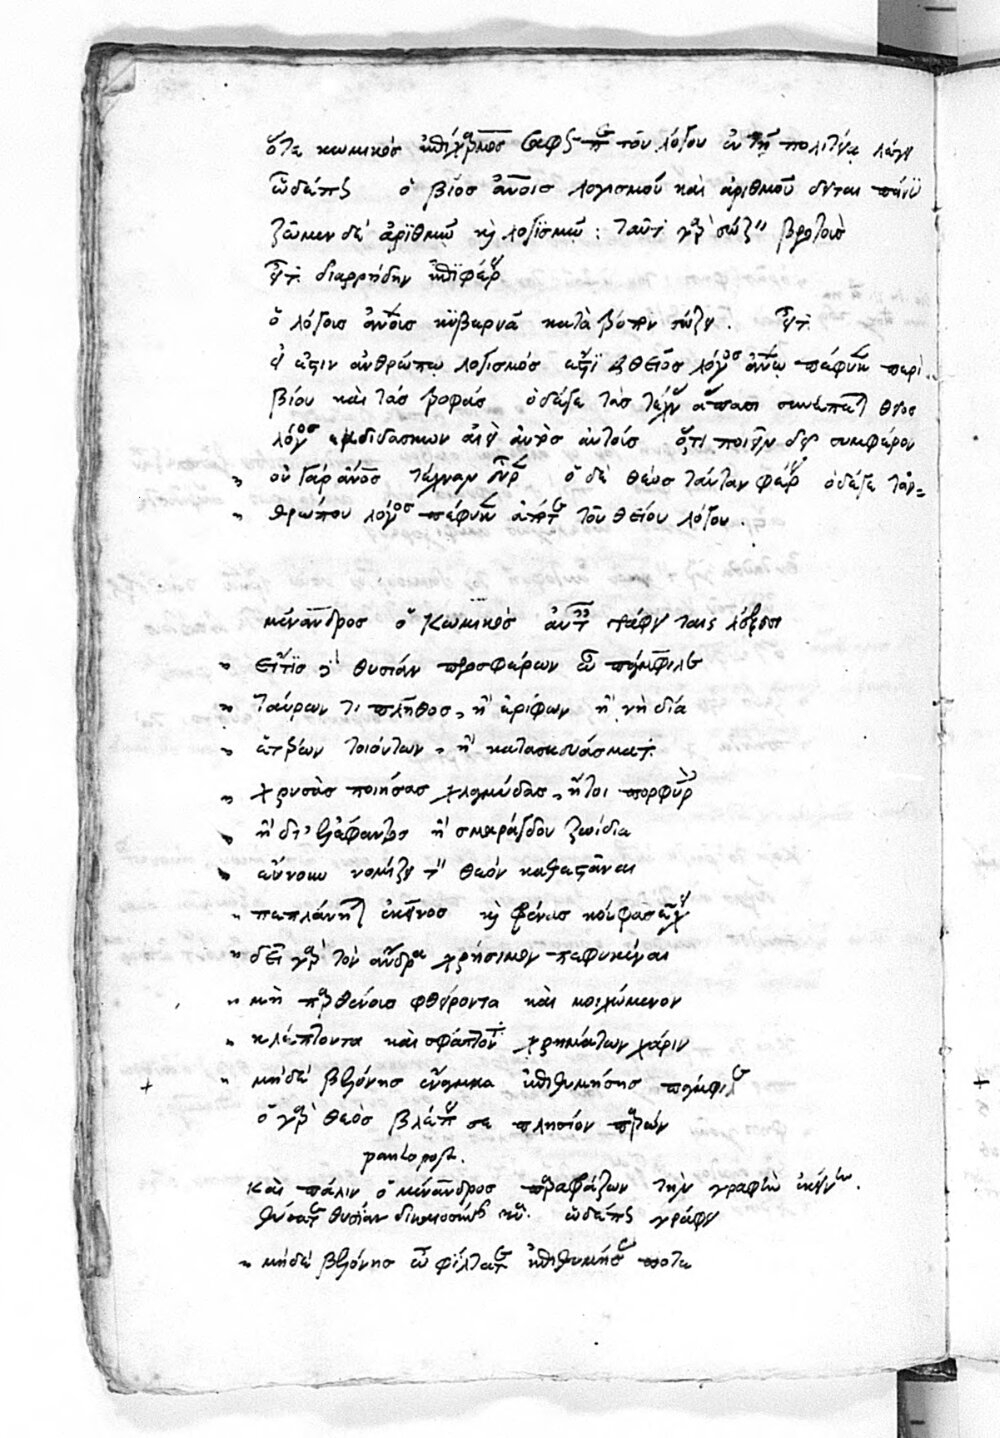 ὅτε κωμικὸς ἐπίχαρμος σαφῶς περὶ τοῦ λόγου ἐν τῇ πολιτείᾳ λέγει
ὧδέ πως ὁ βίος ἀνοις λογισμοῦ καὶ ἀριθμοῦ δεῖται πάνυ
ζῶμεν δὲ ἀριθμῷ καὶ λογισμῷ : ταῦτα γὰρ σώζει βροτοὺς
εἶτα διαρρήδην ἐπιφέρει
ὁ λόγος ἀνους κυβερνᾶ κατὰ τρόπον σώζει . εἶτα
εἰ ἔστιν ἀνθρώπῳ λογισμὸς ἔστι καὶ θεῖος λόγος ἀνῳ πέφυκεν περὶ
βίου καὶ τὰς τροφάς ὁ δέ γε τὰς τέχνας ἅπασι συνέπεται θεῖος
λόγος ἐκδιδάσκων αἰεὶ αὐτὸς αὐτοὺς ὅτι ποιεῖν δεῖ συμφέρον
οὐ γὰρ ἀνος τέχναν εὗρεν ὁ δὲ θεὸς ταύταν φέρει ὁ δέ γε τἀν=
θρώπου λόγος πέφυκεν ἀπὸ τοῦ θείου λόγου .
μένανδρος ὁ κωμικὸς αὐταῖς γράφει ταῖς λέξεσι
" εἴ τις δὲ θυσίαν προσφέρων ὦ πάμφιλε
" ταύρων τι πλῆθος, ἢ ἐρίφων ἢ νὴ δία
" ἑτέρων τοιούτων, ἢ κατασκευάσματα
" χρυσᾶς ποιήσας χλαμύδας, ἤτοι πορφυρᾶς
" ἢ δι' ἐλέφαντος ἢ σμαράγδου ζῴδια
" εὔνουν νομίζει τὸν θεὸν καθεστάναι
" πεπλάνηται ἐκεῖνος καὶ φρένας κούφας ἔχει
" δεῖ γὰρ τὸν ἄνδρα χρήσιμον πεφυκέναι
" μὴ παρθένους φθείροντα καὶ μοιχώμενον
" κλέπτοντα καὶ σφάττοντα χρημάτων χάριν
" μηδὲ βελόνης ἔναμμα ἐπιθυμήσῃς πάμφιλε
ὁ γὰρ θεὸς βλέπει σε πλησίον παρών
paulo post.
καὶ πάλιν ὁ μένανδρος παραφράζων τὴν γραφὴν ἐκείνην .
θύσατε θυσίαν δικαιοσύνης ὧδέ πως γράφει
" μηδὲ βελόνης ὦ φίλτατε ἐπιθυμήσῃς ποτὲ